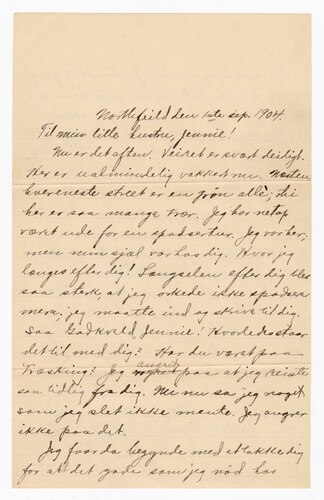 Northfield den 1ste sep. 1904.
Til min lille hustru, Jennie!
Nu er det aften. Veiret er svært deiligt.
Her er ualmindelig vakkert nu. Næsten
hvereneste street er en grön alle, thi
her er saa mange trær. Jeg har netop
været ude for en spadsertur. Jeg var her,
men min sjæl var hos dig. Hvor jeg
længes efter dig! Længselen efter dig blev
saa sterk, at jeg orkede ikke spadsere
mere, jeg maatte ind og skrive til dig.
Saa Godkveld, Jennie! Hvorledes staar
det til med dig? Har du været paa
Træsking? Jeg angrer paa at jeg reiste
saa tidlig fra dig. Nei nu sa jeg noget
som jeg slet ikke mente. Jeg angrer
ikke paa det.
Jeg faar da begynde med at takke dig
for alt det gode som jeg nød hos